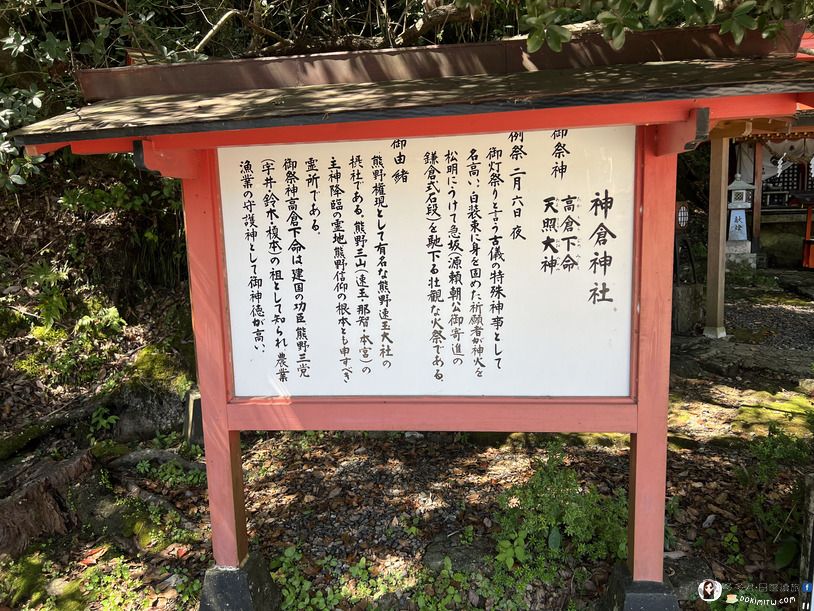 神倉神社
御祭神
高倉下命
天照大神
例祭 二月六日夜
御灯祭りと言う古儀の特殊神事として
名高い、白装束に身を固めた祈願者が神火を
松明につけて急坂(源頼朝公御寄進の
鎌倉式石段)を馳下る壮観な火祭である。
御由緒
熊野権現として有名な熊野速玉大社の
摂社である。熊野三山(速玉・那智・本宮)の
主神降臨の霊地熊野信仰の根本とも申すべき
霊所である。
御祭神高倉下命は建国の功臣 熊野三党
(宇井・鈴木・榎本)の祖として知られ 農業
漁業の守護神として御神徳が高い。
献燈
OOKIMITU.COM